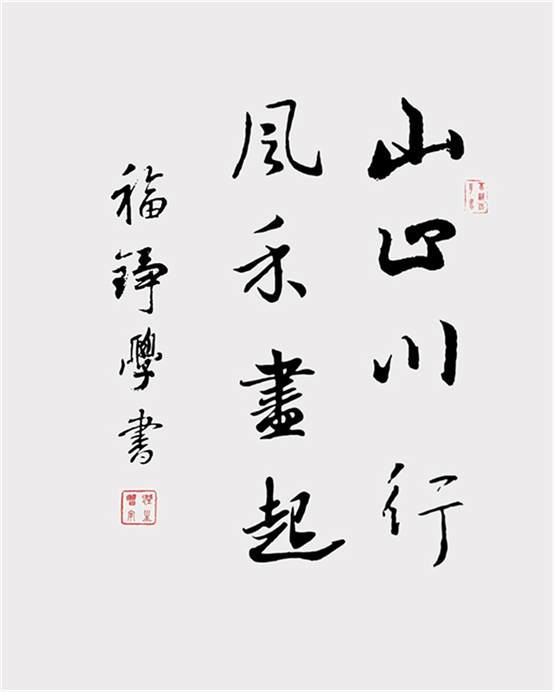 山止川行
風禾畫起
福錚學書